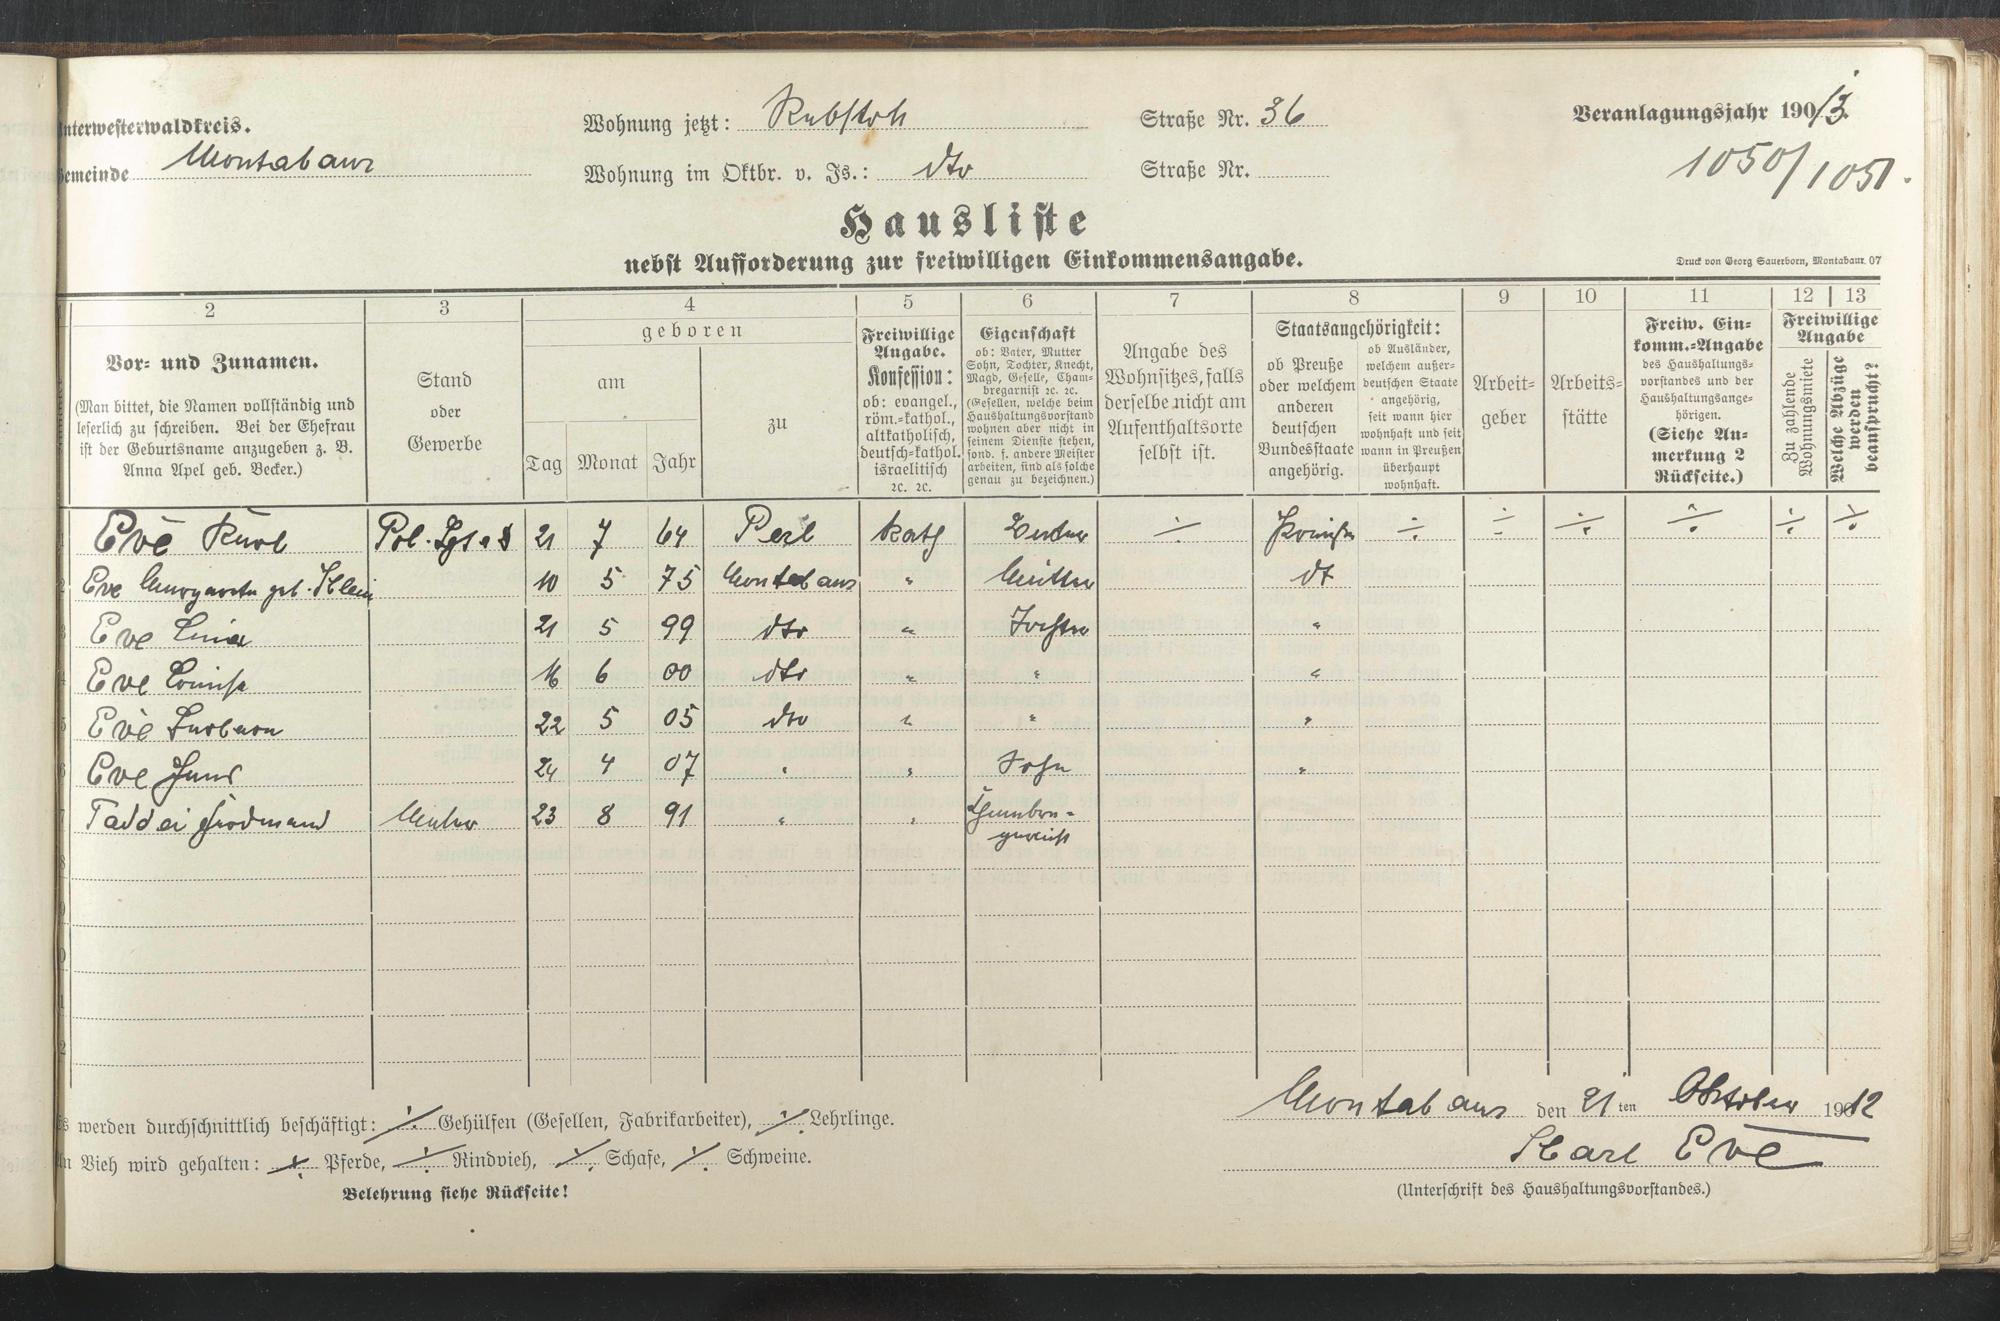 Unterwesterwaldkreis.
Gemeinde Montabaur
Wohnung jetzt: Rebstock Straße Nr. 36
Wohnung im Oktbr. v. Js.: dto Straße Nr.
Veranlagungsjahr 190 13.
1050/1051.
Hausliste
nebst Aufforderung zur freiwilligen Einkommensangabe.
Druck von Georg Sauerborn, Montabaur. 07
2 3 4 5 6 7 8 9 10 11 12 13
Vor- und Zunamen.
(Man bittet, die Namen vollständig und
leserlich zu schreiben. Bei der Ehefrau
ist der Geburtsname anzugeben z. B.
Anna Apel geb. Becker.)
Stand
oder
Gewerbe
geboren
am
Tag Monat Jahr
zu
Freiwillige
Angabe.
Konfession:
ob: evangel.,
röm.-kathol.,
altkatholisch,
deutsch-kathol.
israelitisch
ꝛc. ꝛc.
Eigenschaft
ob: Vater, Mutter
Sohn, Tochter, Knecht,
Magd, Geselle, Cham-
bregarnist ꝛc. ꝛc.
(Gesellen, welche beim
Haushaltungsvorstand
wohnen aber nicht in
seinem Dienste stehen,
sond. f. andere Meister
arbeiten, sind als solche
genau zu bezeichnen.)
Angabe des
Wohnsitzes, falls
derselbe nicht am
Aufenthaltsorte
selbst ist.
Staatsangehörigkeit:
ob Preuße
oder welchem
anderen
deutschen
Bundesstaate
angehörig.
ob Ausländer,
welchem außer-
deutschen Staate
angehörig,
seit wann hier
wohnhaft und seit
wann in Preußen
überhaupt
wohnhaft.
Arbeit-
geber
Arbeits-
stätte
Freiw. Ein-
komm.-Angabe
des Haushaltungs-
vorstandes und der
Haushaltungsange-
hörigen.
(Siehe An-
merkung 2
Rückseite.)
Freiwillige
Angabe
Zu zahlende
Wohnungsmiete
Welche Abzüge
werden
beansprucht?
Eve Karl Pol. Sgt. 21 7 64 Perl kath Vater ÷ Preuße ÷ ÷ ÷ ÷ ÷ ÷
Eve Margareta geb. Klein 10 5 75 Montabaur " Mutter dt
Eve 21 5 99 dto " Tochter "
Eve Louise 16 6 00 dto " " "
Eve Barbara 22 5 05 dto " " "
Eve Hans 24 4 07 " " Sohn "
Taddei Ferdinand Maler 23 8 91 " " Chambre-
garnist
Es werden durchschnittlich beschäftigt: ÷ Gehülfen (Gesellen, Fabrikarbeiter), ÷ Lehrlinge.
An Vieh wird gehalten: ÷ Pferde, ÷ Rindvieh, ÷ Schafe, ÷ Schweine.
Belehrung siehe Rückseite!
Montabaur den 21 ten Oktober 1912
Karl Eve
(Unterschrift des Haushaltungsvorstandes.)